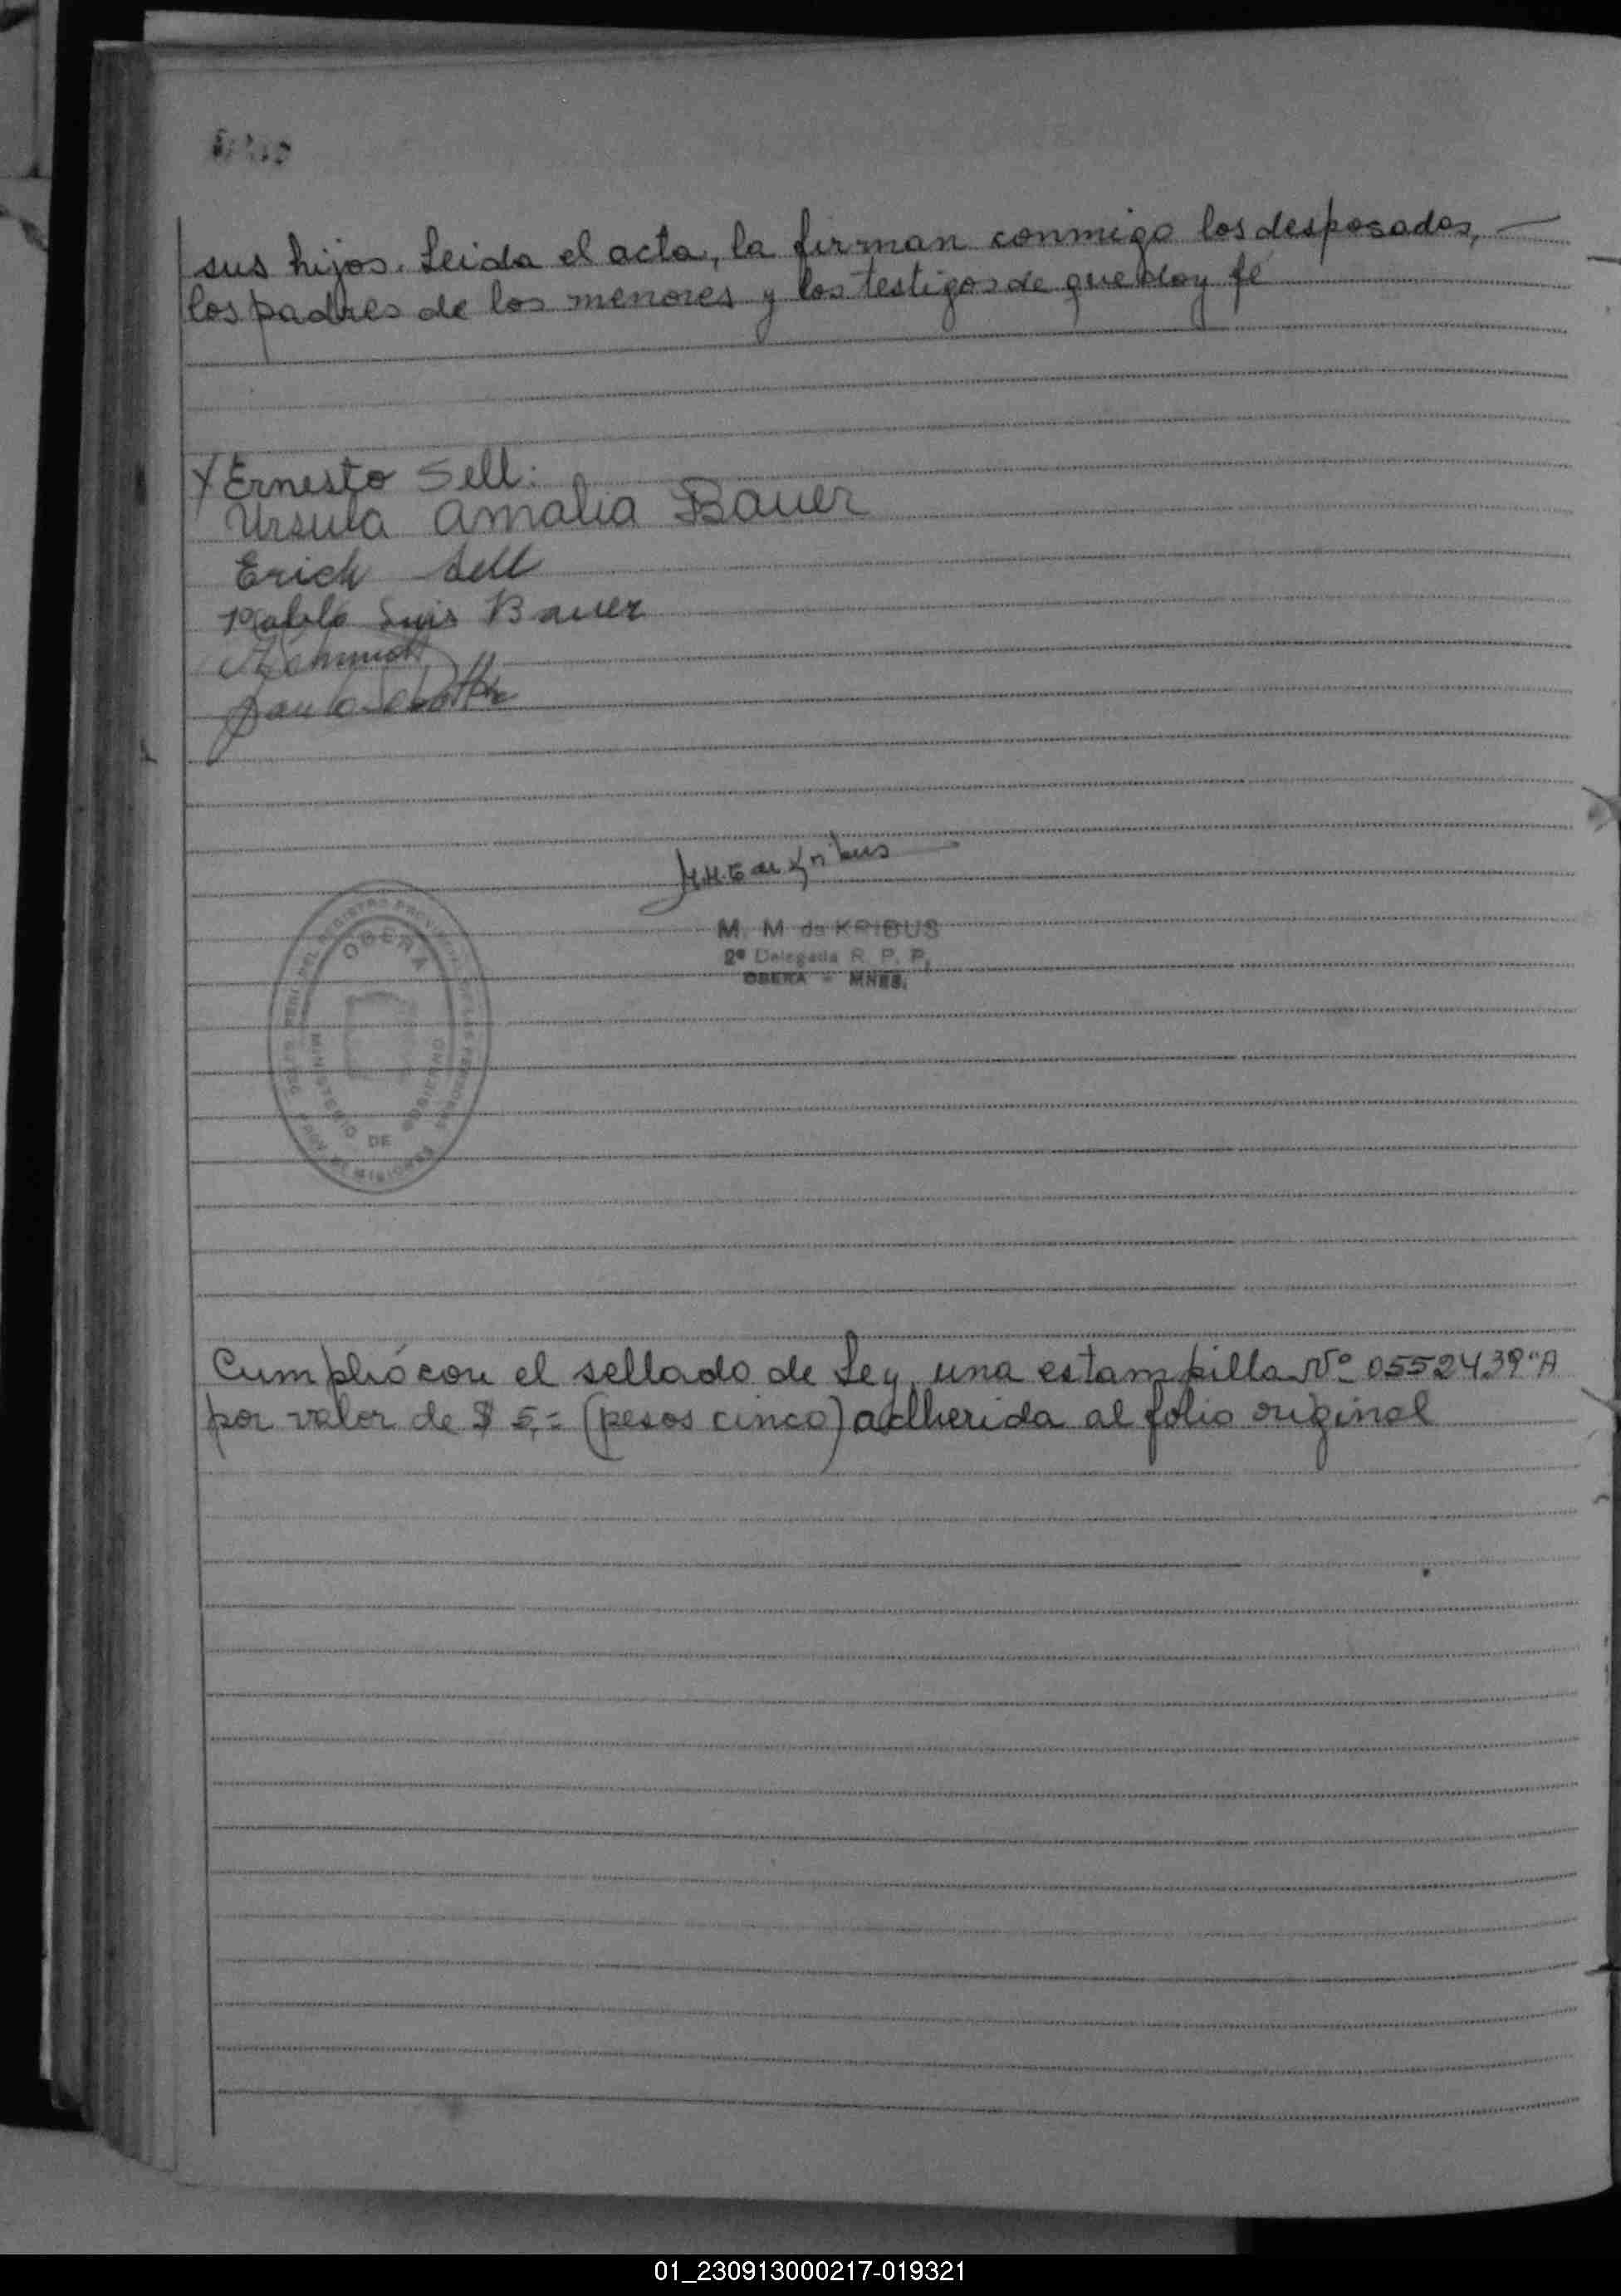 sus hijos. Leida el acta, la firman conmigo los desposados, —
los padres de los menores y los testigos de que doy fé
Ernesto Sell.
Ursula Amalia Bauer
Erich Sell
Pablo Luis Bauer
Schmidt
M. M de KRIBUS
2ª Delegada R. P. P.
OBERA - MNES.
OBERA
MINISTERIO DE GOBIERNO
Cumplió con el sellado de Ley, una estampilla Nº 0552439 "A
por valor de $ 5,= (pesos cinco) adherida al folio original
01_230913000217-019321